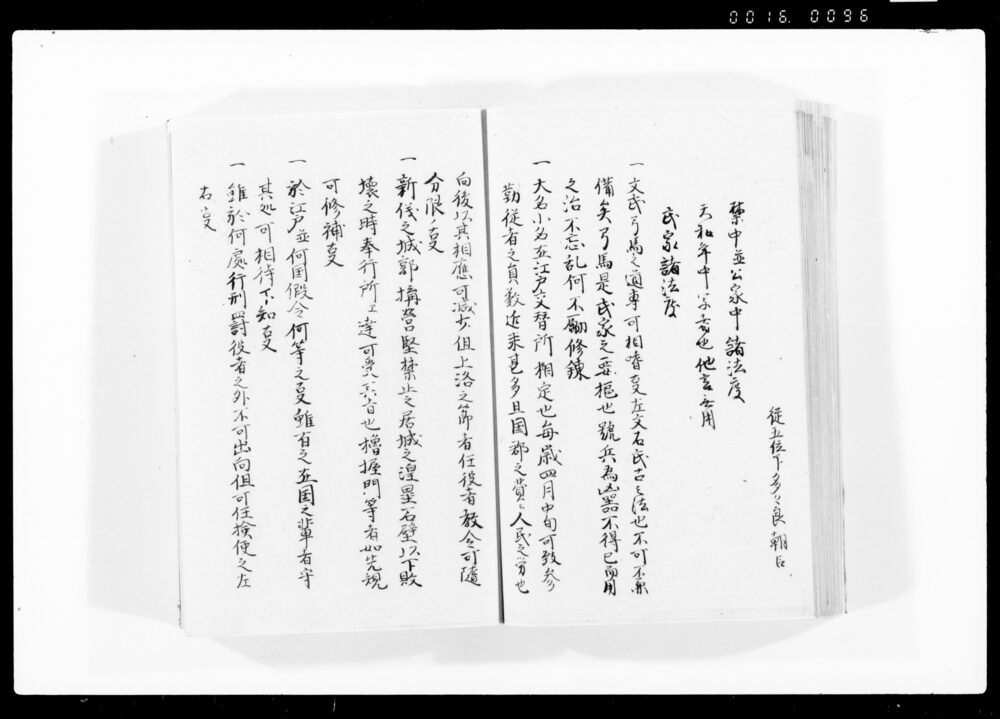 0016.0096
従五位下多々良朝臣
禁中並公家中諸法度
天和年中
武家諸法度
一 文武弓馬之道専可相嗜叓左文右武古之法也不可不兼
備矣弓馬是武家之要樞也號兵為凶器不得已而用
之治不忘乱何不勵修錬
一 大名小名在江戸交替所相定也毎歳四月中旬可致參
勤従者之員数近来甚多且国郡之費且人民之労也
向後以其相應可减少但上洛之節者任役者教令可隨
分限叓
一 新儀之城郭搆營堅禁止之居城之湟壘石壁以下敗
壊之時奉行所エ達可受其旨也櫓塀門等者如先規
可修補叓
一 於江戸並何国假令何等之叓雖有之在国之輩者守
其処可相待下知叓
一 雖於何處行刑罰役者之外不可出向但可任撿使之左
右叓